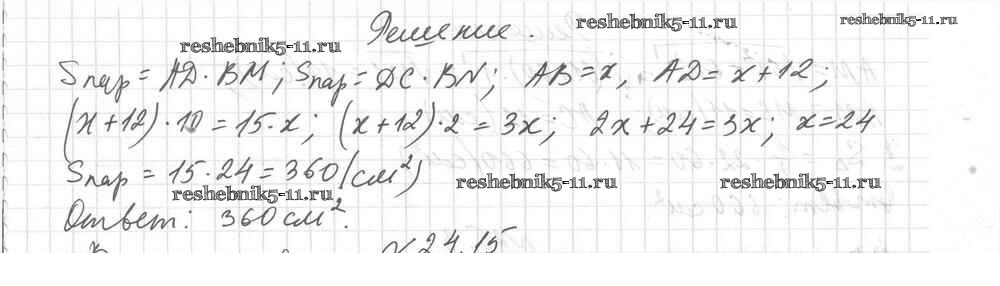 Решение.
reshebnik5-11.ru
reshebnik5-11.ru
reshebnik5-11.ru
Sпар = AD · BM; Sпар = DC · BN; AB = x, AD = x + 12;
(x + 12) · 10 = 15 · x; (x + 12) · 2 = 3x; 2x + 24 = 3x; x = 24
Sпар = 15 · 24 = 360 (см²)
reshebnik5-11.ru
reshebnik5-11.ru
reshebnik5-11.ru
Ответ: 360 см².
24.15